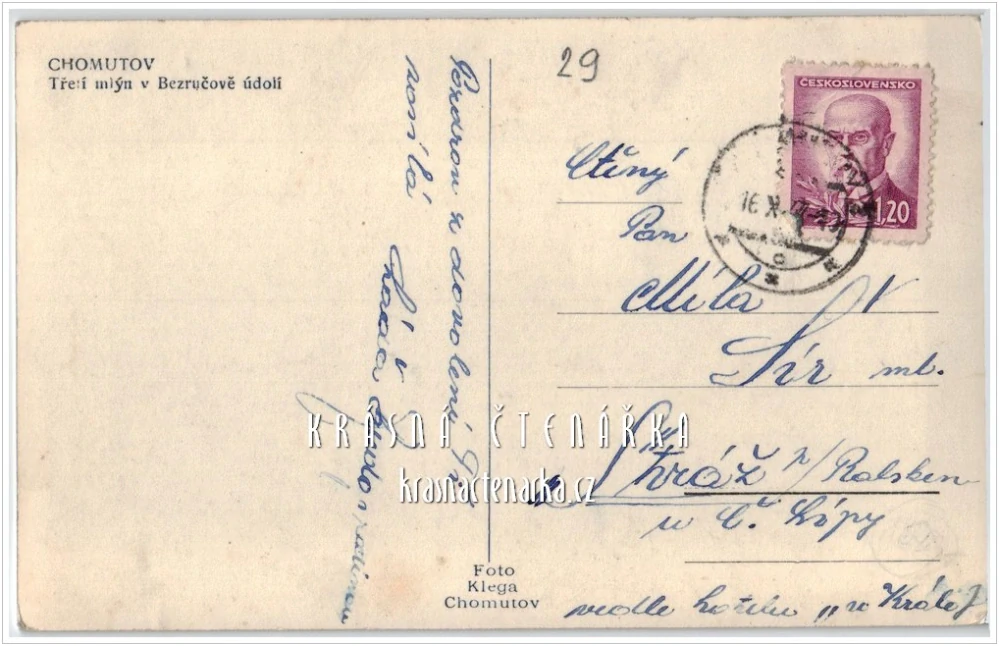 CHOMUTOV
Třetí mlýn v Bezručově údolí
29
ČESKOSLOVENSKO
1,20
16.X.
Pozdrav z dovolené Ti
posílá
Ctěný
Pan
Míla
Sír ml.
Stráž p/Ralskem
u Č. Lípy
vedle hotelu „u Krále J
KRÁSNÁ ČTENÁŘKA
krasnactenarka.cz
Foto
Klega
Chomutov